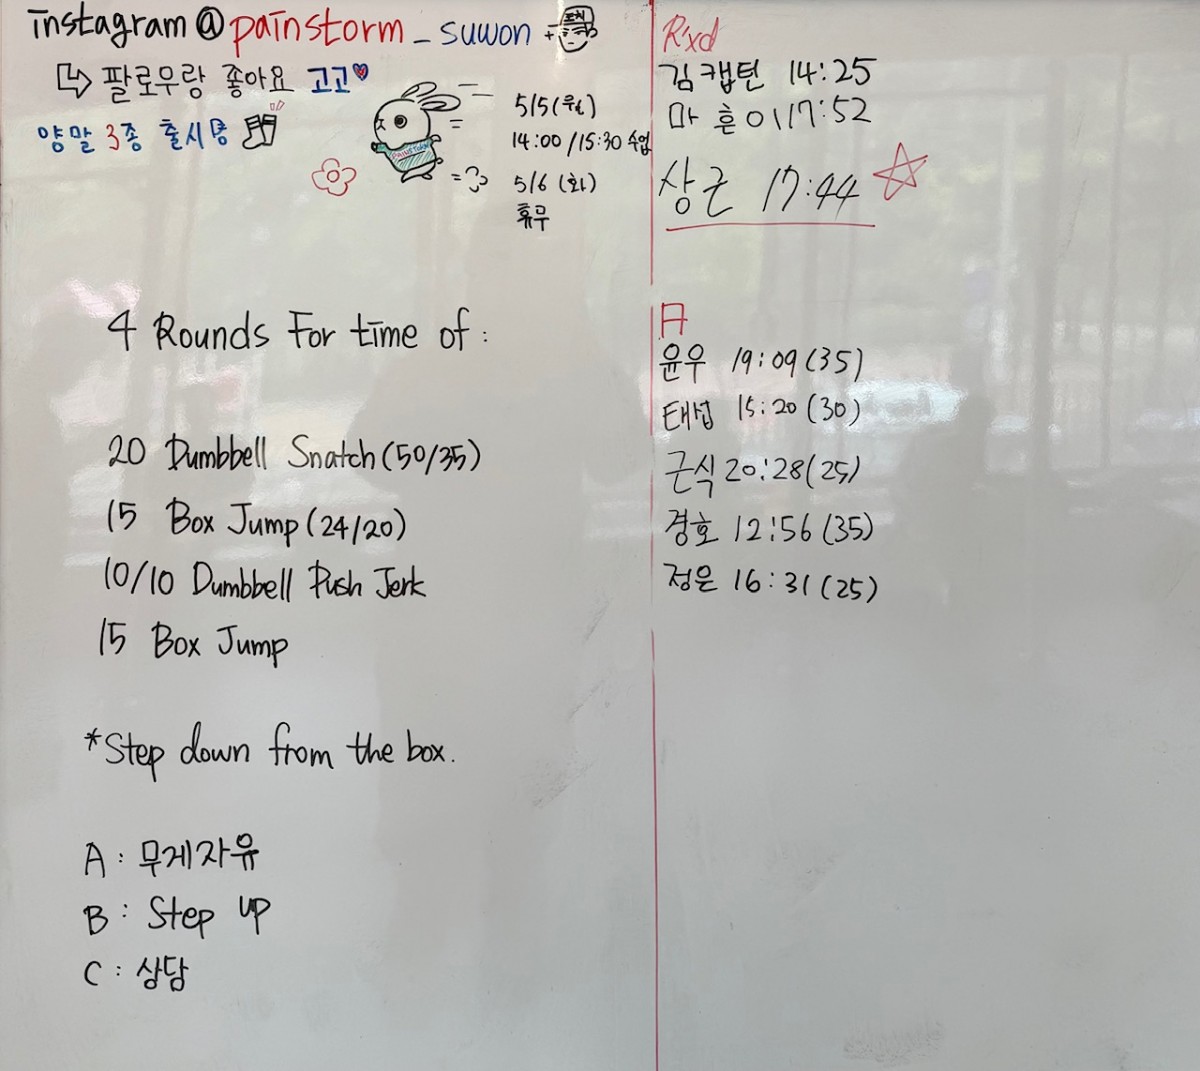 instagram@painstorm_suwon +
팔로우랑 좋아요 고고
양말 3종 출시
PAINSTORM
5/5(월)
14:00/15:30 수업
5/6 (화)
휴무
4 Rounds For time of :
20 Dumbbell Snatch(50/35)
15 Box Jump(24/20)
10/10 Dumbbell Push Jerk
15 Box Jump
*Step down from the box.
A : 무게자유
B : Step up
C : 상담
R'xd
김캡틴 14:25
마흔이 17:52
상근 17:44
A
윤우 19:09(35)
태섭 15:20(30)
근식 20:28(25)
경호 12:56(35)
정은 16:31(25)